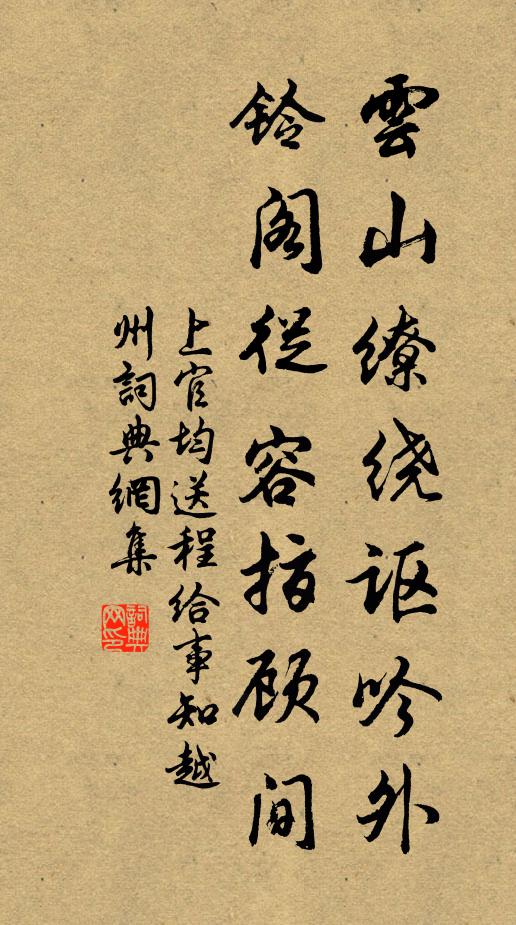 雲山繚绕讴吟外
鈴阁從容指顾间
上官均送程给事知越
州詞典網集
詞典
网印